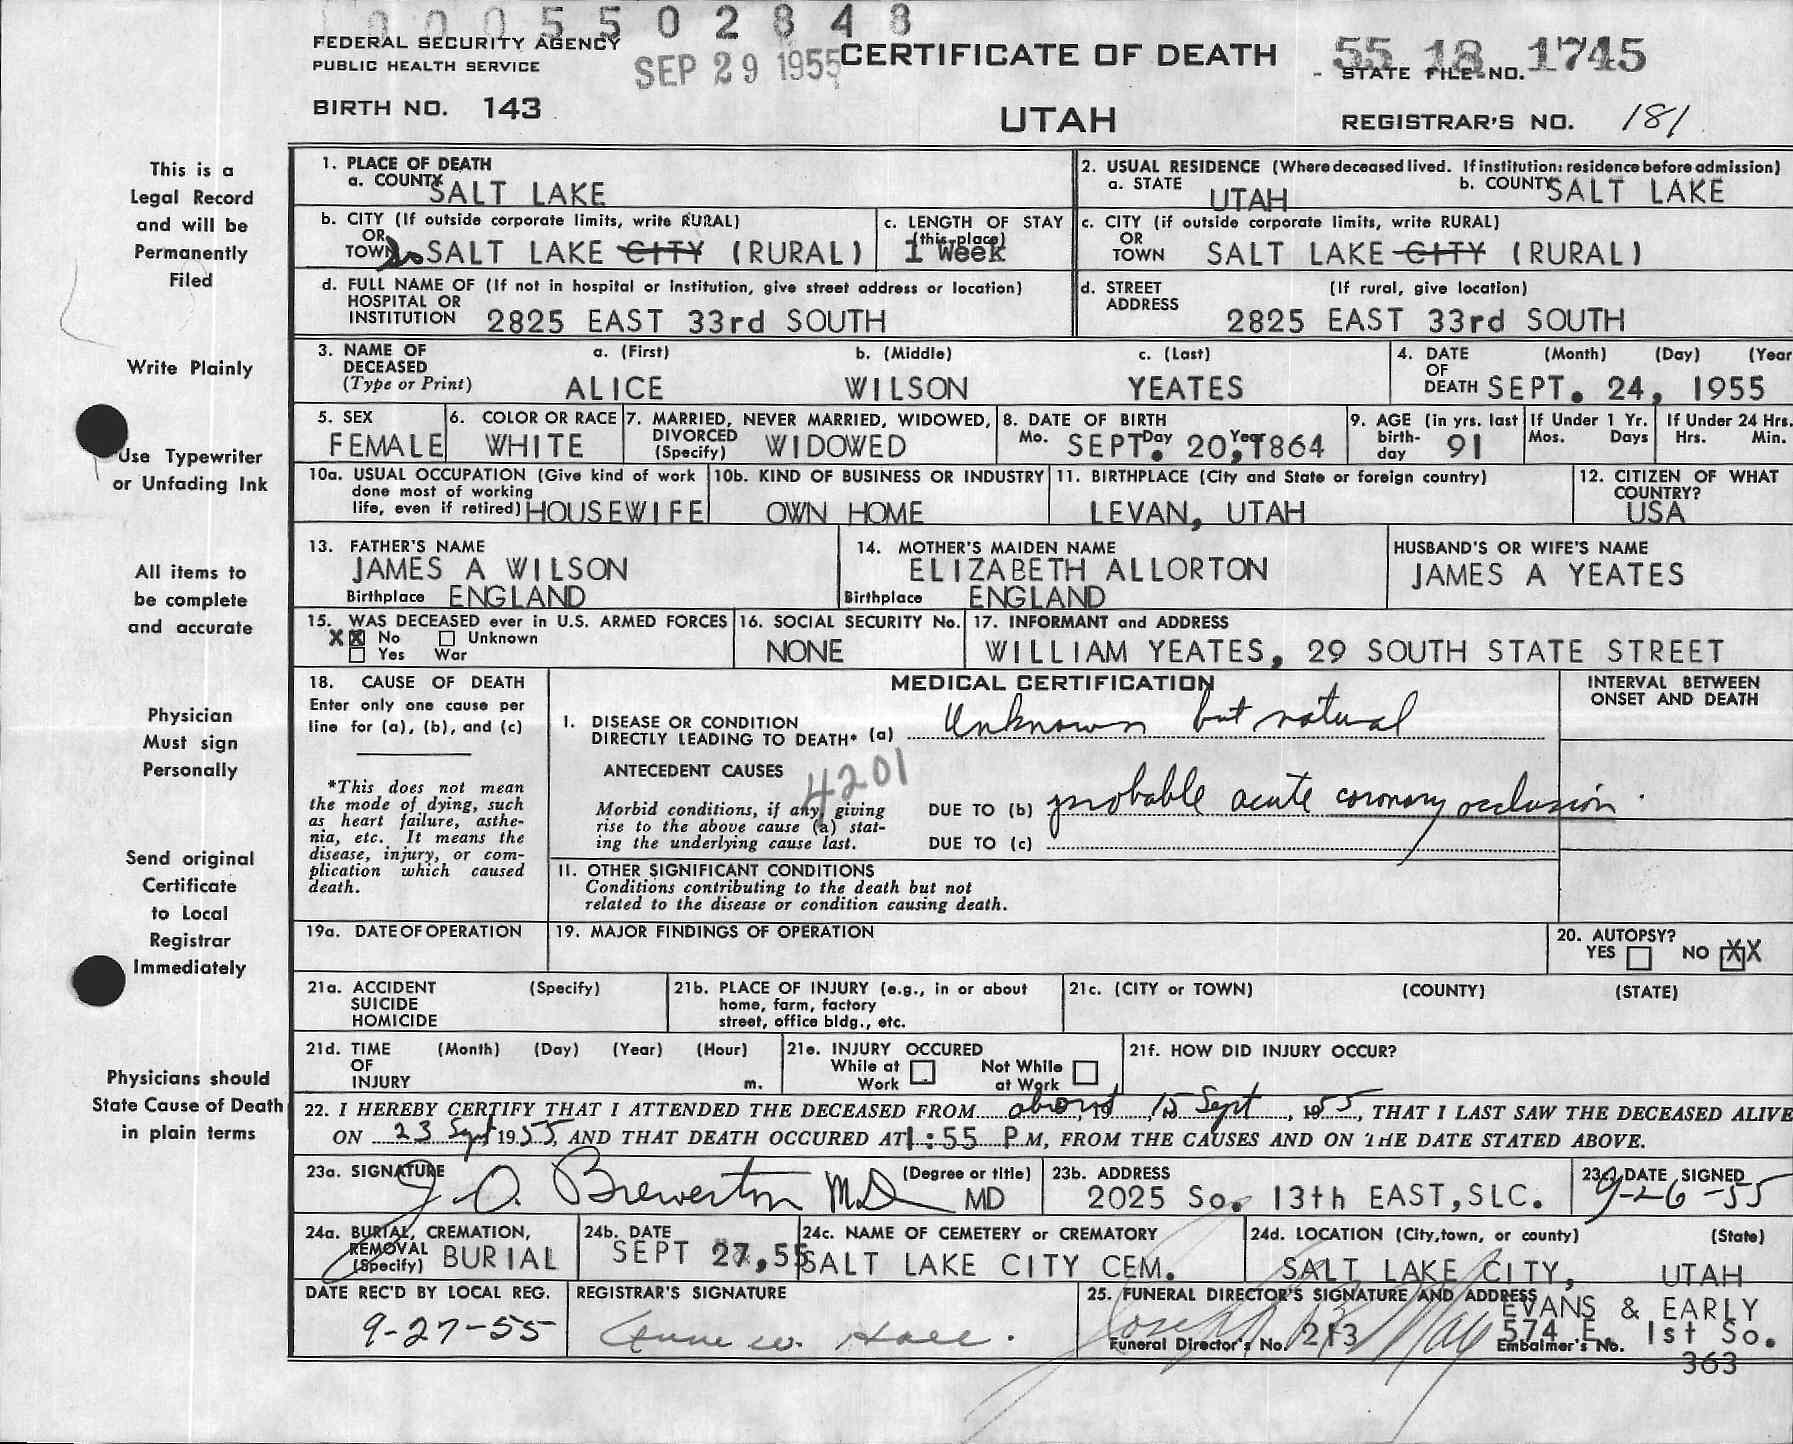 0005502848
FEDERAL SECURITY AGENCY
PUBLIC HEALTH SERVICE
SEP 29 1955
CERTIFICATE OF DEATH
55 18 1745
STATE FILE NO.
BIRTH NO. 143
UTAH
REGISTRAR'S NO. 181
This is a
Legal Record
and will be
Permanently
Filed
Write Plainly
Use Typewriter
or Unfading Ink
All items to
be complete
and accurate
Physician
Must sign
Personally
Send original
Certificate
to Local
Registrar
Immediately
Physicians should
State Cause of Death
in plain terms
1. PLACE OF DEATH
a. COUNTY SALT LAKE
2. USUAL RESIDENCE (Where deceased lived. If institution: residence before admission)
a. STATE UTAH b. COUNTY SALT LAKE
b. CITY (If outside corporate limits, write RURAL)
OR
TOWN So SALT LAKE CITY (RURAL)
c. LENGTH OF STAY
(this place)
1 Week
c. CITY (if outside corporate limits, write RURAL)
OR
TOWN SALT LAKE CITY (RURAL)
d. FULL NAME OF (If not in hospital or institution, give street address or location)
HOSPITAL OR
INSTITUTION 2825 EAST 33rd SOUTH
d. STREET (If rural, give location)
ADDRESS
2825 EAST 33rd SOUTH
3. NAME OF a. (First) b. (Middle) c. (Last)
DECEASED
(Type or Print) ALICE WILSON YEATES
4. DATE (Month) (Day) (Year
OF
DEATH SEPT. 24, 1955
5. SEX
FEMALE
6. COLOR OR RACE
WHITE
7. MARRIED, NEVER MARRIED, WIDOWED,
DIVORCED
(Specify) WIDOWED
8. DATE OF BIRTH
Mo. Day Year
SEPT. 20, 1864
9. AGE (in yrs. last
birth-
day 91
If Under 1 Yr.
Mos. Days
If Under 24 Hrs.
Hrs. Min.
10a. USUAL OCCUPATION (Give kind of work
done most of working
life, even if retired) HOUSEWIFE
10b. KIND OF BUSINESS OR INDUSTRY
OWN HOME
11. BIRTHPLACE (City and State or foreign country)
LEVAN, UTAH
12. CITIZEN OF WHAT
COUNTRY?
USA
13. FATHER'S NAME
JAMES A WILSON
Birthplace ENGLAND
14. MOTHER'S MAIDEN NAME
ELIZABETH ALLORTON
Birthplace ENGLAND
HUSBAND'S OR WIFE'S NAME
JAMES A YEATES
15. WAS DECEASED ever in U.S. ARMED FORCES
XX No Unknown
Yes War
16. SOCIAL SECURITY No.
NONE
17. INFORMANT and ADDRESS
WILLIAM YEATES, 29 SOUTH STATE STREET
18. CAUSE OF DEATH
Enter only one cause per
line for (a), (b), and (c)
*This does not mean
the mode of dying, such
as heart failure, asthe-
nia, etc. It means the
disease, injury, or com-
plication which caused
death.
MEDICAL CERTIFICATION
INTERVAL BETWEEN
ONSET AND DEATH
I. DISEASE OR CONDITION
DIRECTLY LEADING TO DEATH* (a) Unknown but natural
ANTECEDENT CAUSES
4201
Morbid conditions, if any, giving
rise to the above cause (a) stat-
ing the underlying cause last.
DUE TO (b) probable acute coronary occlusion.
DUE TO (c)
II. OTHER SIGNIFICANT CONDITIONS
Conditions contributing to the death but not
related to the disease or condition causing death.
19a. DATE OF OPERATION
19. MAJOR FINDINGS OF OPERATION
20. AUTOPSY?
YES NO XX
21a. ACCIDENT (Specify)
SUICIDE
HOMICIDE
21b. PLACE OF INJURY (e.g., in or about
home, farm, factory
street, office bldg., etc.
21c. (CITY or TOWN) (COUNTY) (STATE)
21d. TIME (Month) (Day) (Year) (Hour)
OF
INJURY m.
21e. INJURY OCCURED
While at Not While
Work at Work
21f. HOW DID INJURY OCCUR?
22. I HEREBY CERTIFY THAT I ATTENDED THE DECEASED FROM about, 19 15 Sept, 1955, THAT I LAST SAW THE DECEASED ALIVE
ON 23 Sept 1955, AND THAT DEATH OCCURED AT 1:55 P.M, FROM THE CAUSES AND ON THE DATE STATED ABOVE.
23a. SIGNATURE (Degree or title)
J. O. Brewerton MD MD
23b. ADDRESS
2025 So. 13th EAST, SLC.
23c. DATE SIGNED
9-26-55
24a. BURIAL, CREMATION,
REMOVAL
(Specify) BURIAL
24b. DATE
SEPT 27, 55
24c. NAME OF CEMETERY or CREMATORY
SALT LAKE CITY CEM.
24d. LOCATION (City, town, or county) (State)
SALT LAKE CITY, UTAH
DATE REC'D BY LOCAL REG.
9-27-55
REGISTRAR'S SIGNATURE
Anne W. Hall.
25. FUNERAL DIRECTOR'S SIGNATURE AND ADDRESS
EVANS & EARLY
Joseph B May
574 E. 1st So.
Funeral Director's No. 213 Embalmer's No.
363